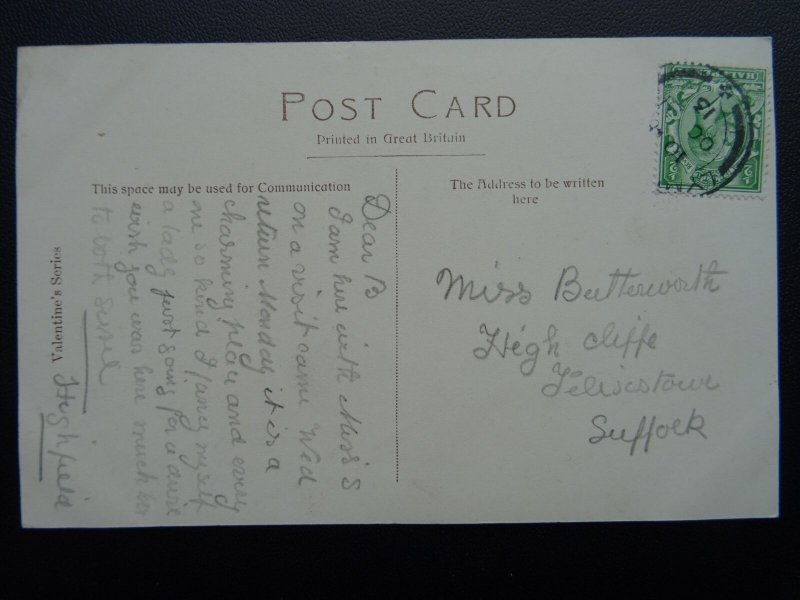 POST CARD
Printed in Great Britain
This space may be used for Communication
The Address to be written
here
Valentine's Series
Dear B
I am here with Miss S
on a visit came Wed
return Monday it is a
charming place and every
one so kind I fancy myself
a lady just going for a drive
wish you was here much love
to both
Highfield
Miss Butterworth
High Cliffe
Felixestowe
Suffolk